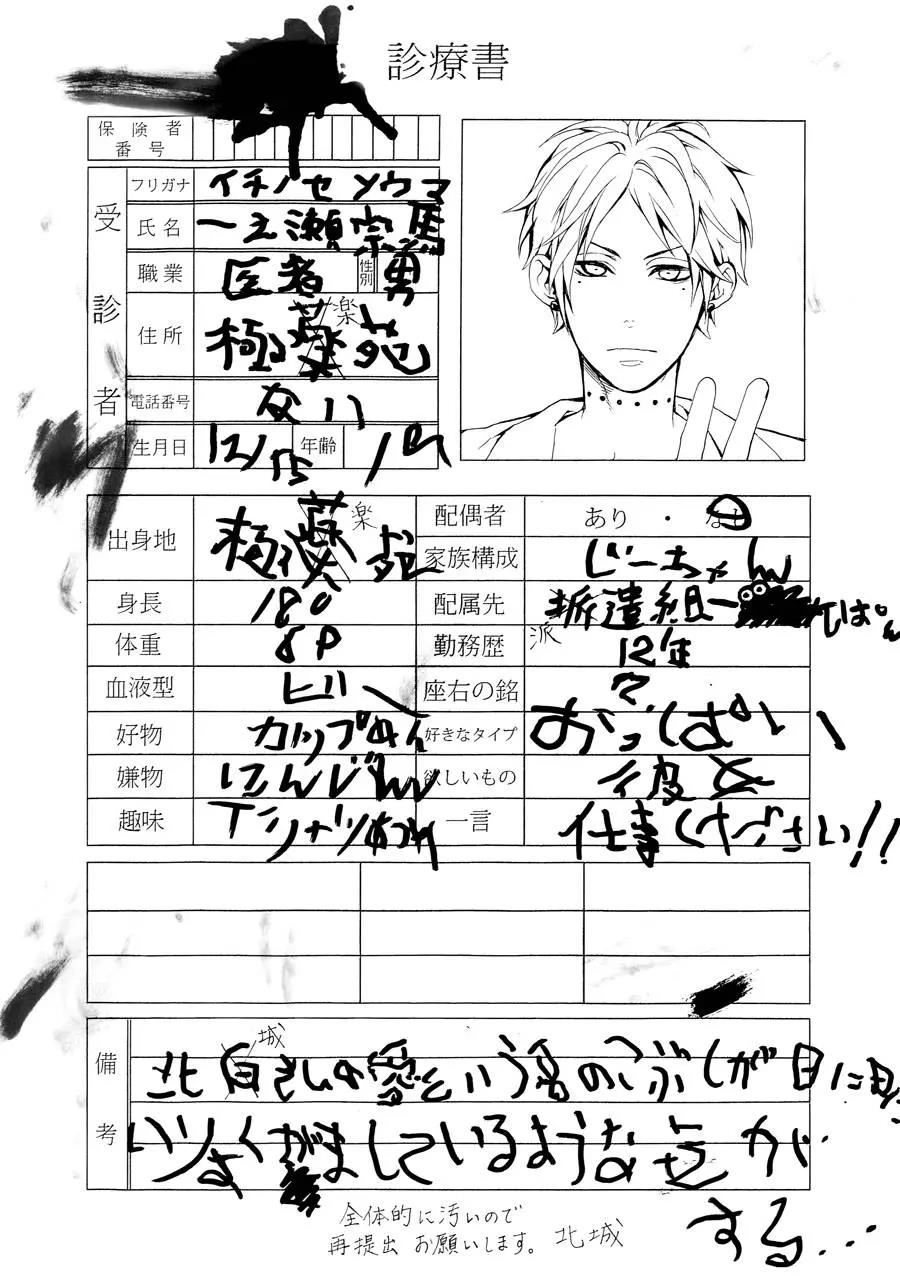 診療書
保険者
番号
受診者
フリガナ イチノセ ソウマ
氏名 一之瀬宗馬
職業 医者 性別 男
住所 極楽苑
電話番号 ない
生月日 12/15 年齢 19
出身地 極楽苑
配偶者 あり・なし
家族構成 じーちゃん
身長 180
配属先 派遣組一 てぱん
派
体重 89
勤務歴 12年
血液型 ビー
座右の銘 ?
好物 カップめん
好きなタイプ おっぱい
嫌物 にんじん
欲しいもの 彼女
趣味 Tシャツあつめ
一言 仕事ください!!
備考
城
北白さんの愛という名のこぶしが目に見
いりょくがましているような気が
する...
全体的に汚いので
再提出 お願いします。 北城